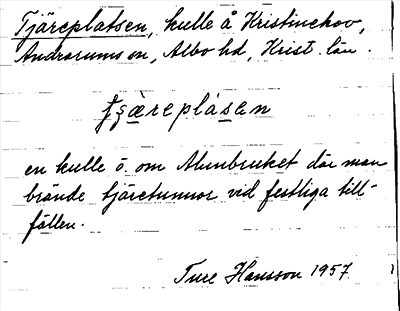 Tjäreplatsen, kulle å Kristinehov,
Andrarums sn, Albo hd, Krist. län.
en kulle ö. om Alunbruket där man
brände tjäretunnor vid festliga till-
fällen.
Ture Hansson 1957